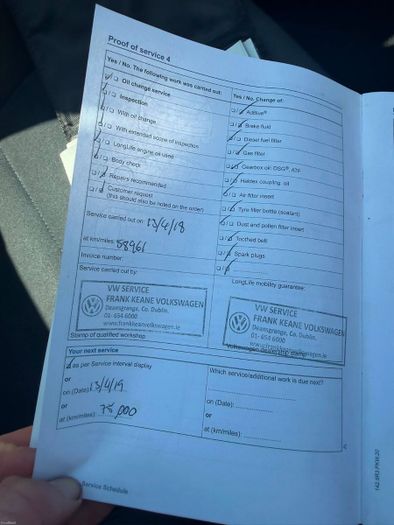 Proof of service 4
Yes / No. The following work was carried out:
Oil change service
Inspection
With oil change
With extended scope of inspection
LongLife engine oil used
Body check
Repairs recommended
Customer request
(this should also be noted on the order)
Service carried out on: 13/4/18
at km/miles: 58961
Invoice number:
Service carried out by:
VW SERVICE
FRANK KEANE VOLKSWAGEN
Deansgrange, Co. Dublin.
01- 654 6000
www.frankkeanevolkswagen.ie
Stamp of qualified workshop
Yes / No. Change of:
AdBlue®
Brake fluid
Diesel fuel filter
Gas filter
Gearbox oil: DSG®,
Haldex coupling: oil
Air filter insert
Tyre filler bottle (sealant)
Dust and pollen filter insert
Toothed belt
Spark plugs
LongLife mobility guarantee:
VW SERVICE
FRANK KEANE VOLKSWAGEN
Deansgrange, Co. Dublin.
01- 654 6000
Volkswagen dealership stamp
Your next service
as per Service interval display
or
on (Date): 13/4/19
or
at (km/miles): 75,000
Which service/additional work is due next?
on (Date):
or
at (km/miles):
Service Schedule